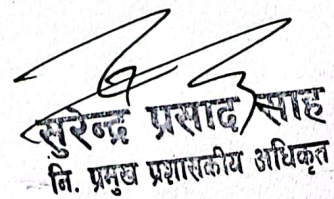 सुरेन्द्र प्रसाद साह
नि. प्रमुख प्रशासकीय अधिकृत